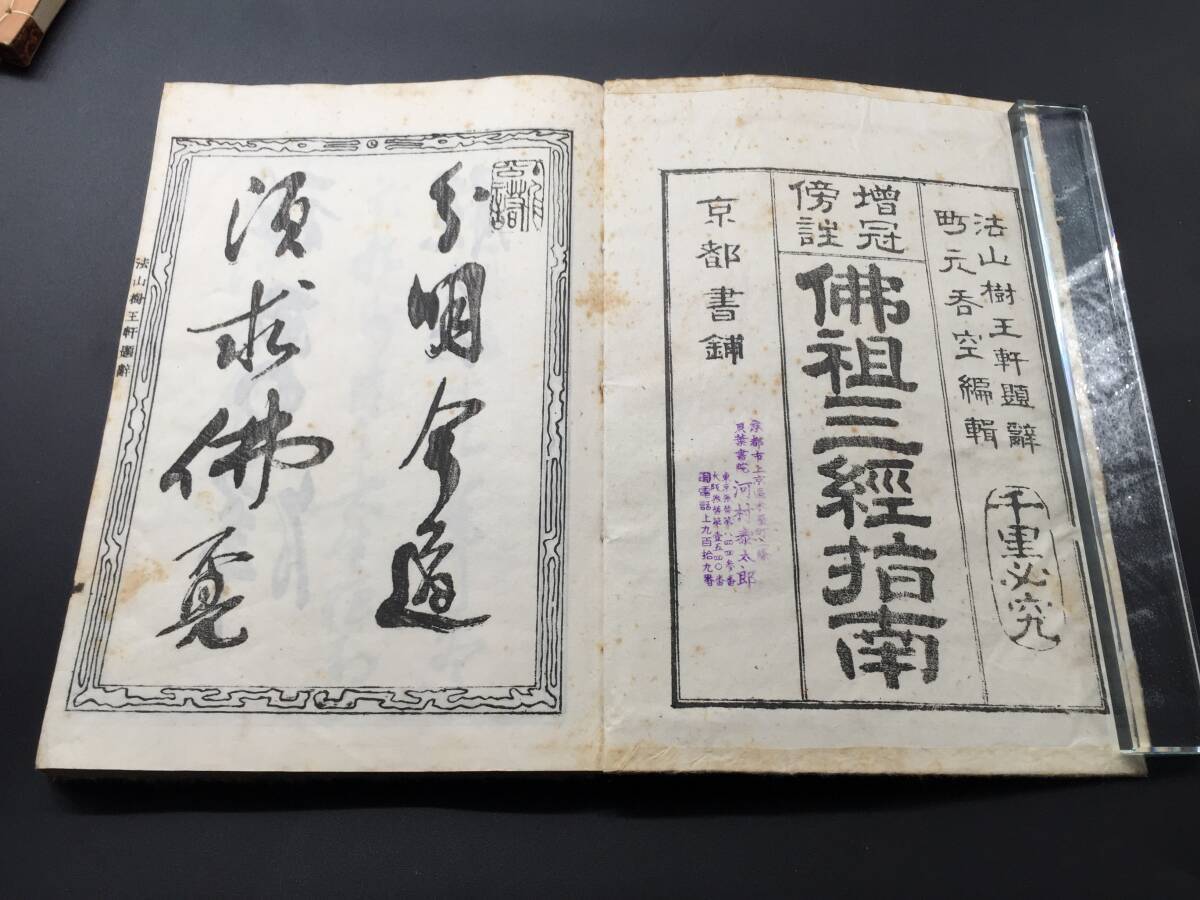 法山樹王軒題辭
町元呑空編輯
千里必究
增冠
傍註
佛祖三經指南
京都書鋪
京都市上京區木屋町二條
貝葉書院 河村泰太郎
電話上九百拾九番
分明今道
須求佛覓
法山樹王軒題辭